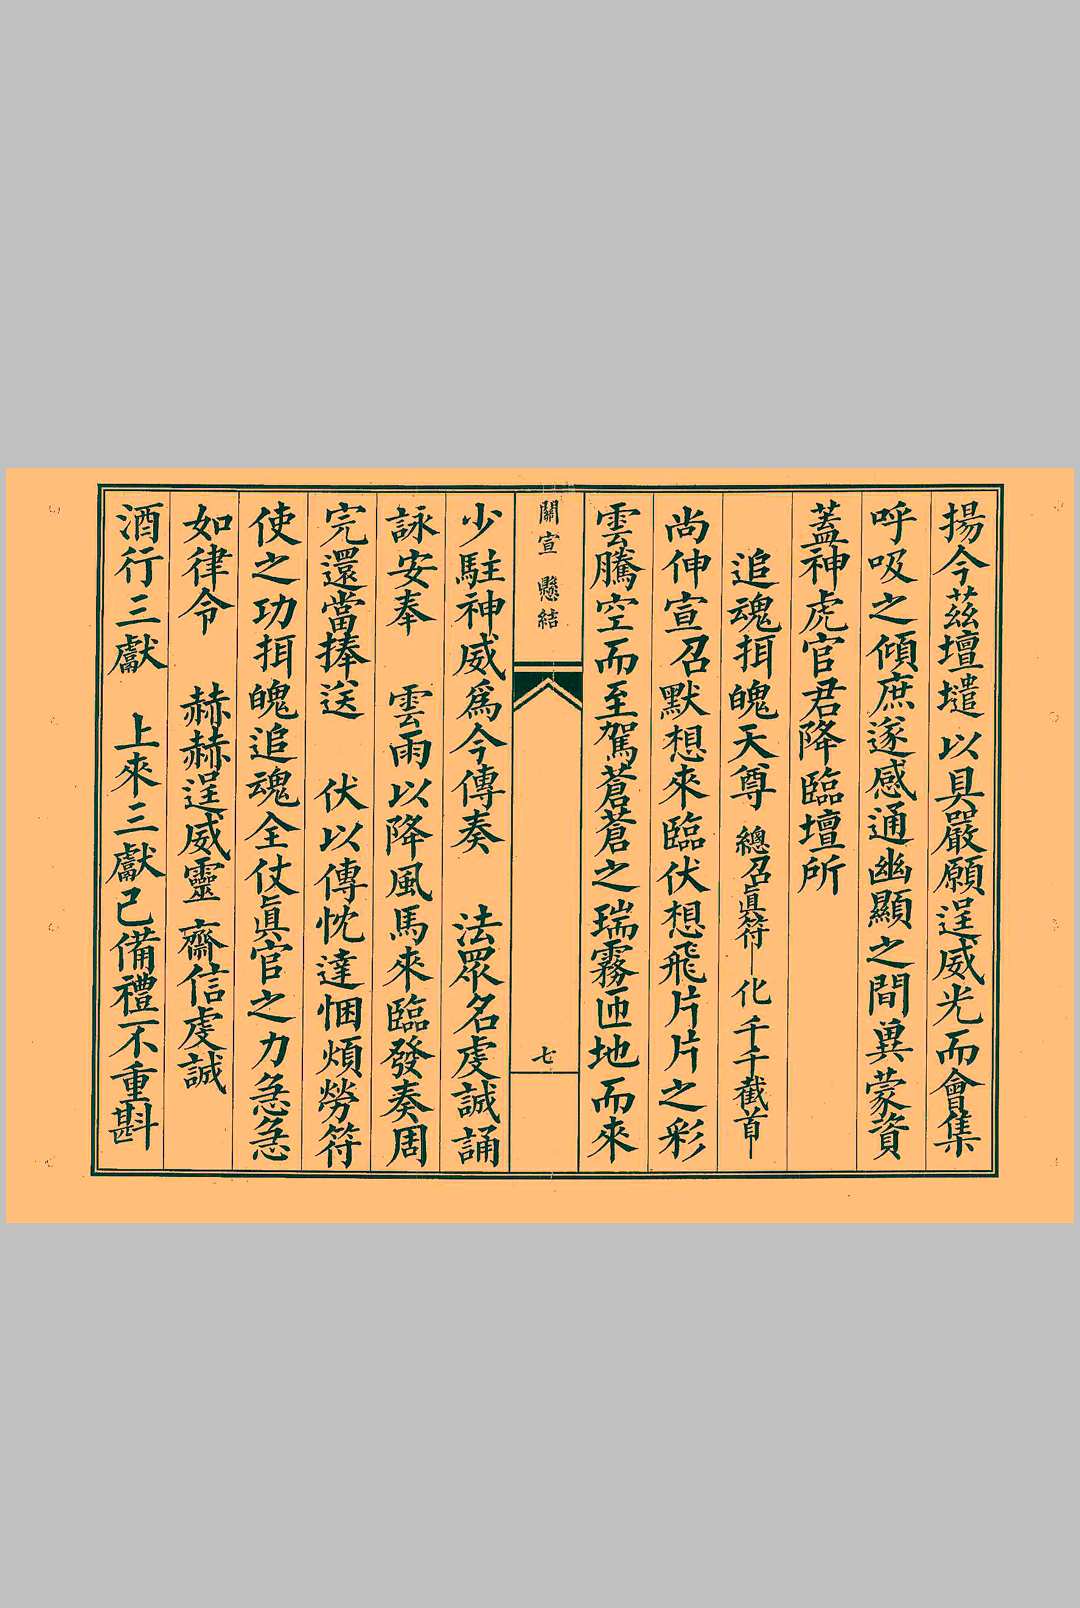 揚今茲壇墠以具嚴願逞威光而會集
呼吸之傾庶遂感通幽顯之間異蒙資
蓋神虎官君降臨壇所
追魂拑魄天尊 總召眞符一化千千截首
尚伸宣召默想來臨伏想飛片片之彩
雲騰空而至駕蒼蒼之瑞霧匝地而來
關宣 懸結
七
少駐神威爲今傳奏 法眾名虔誠誦
詠安奉 雲雨以降風馬來臨發奏周
完還當捧送 伏以傳忱達悃煩勞符
使之功拑魄追魂全仗眞官之力急急
如律令 赫赫逞威靈 齋信虔誠
酒行三獻 上來三獻已備禮不重斟